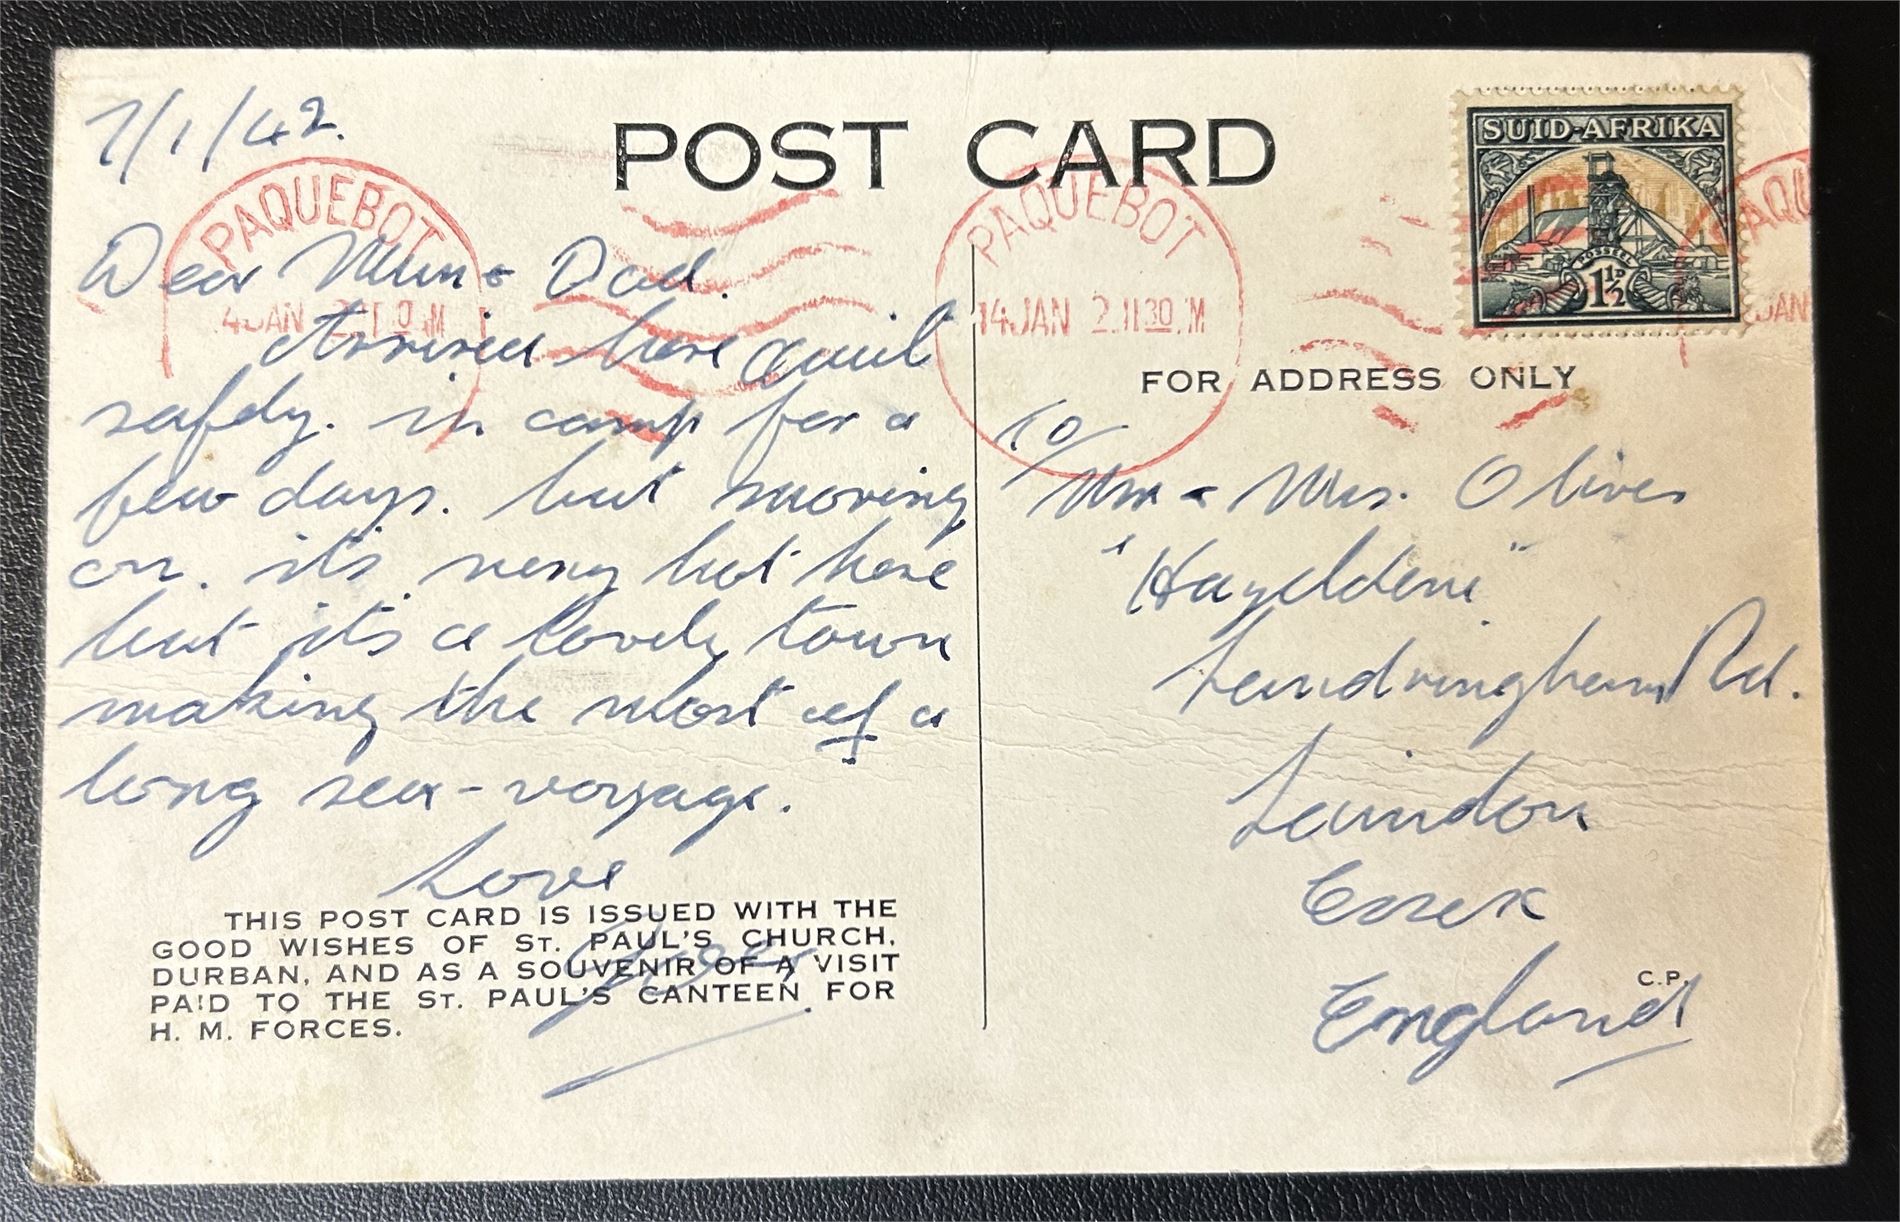 7/1/42.
POST CARD
SUID-AFRIKA
POSSEËL
1½D
PAQUEBOT
PAQUEBOT
14 JAN 2 1130 M
Dear Mum & Dad.
Arrived here quit
safely. in camp for a
few days. but moving
on. it's very hot here
but it's a lovely town
making the most of a
long sea-voyage.
Love
THIS POST CARD IS ISSUED WITH THE
GOOD WISHES OF ST. PAUL'S CHURCH,
DURBAN, AND AS A SOUVENIR OF A VISIT
PAID TO THE ST. PAUL'S CANTEEN FOR
H. M. FORCES.
FOR ADDRESS ONLY
To/
Mr & Mrs. Oliver
"Hayeldene"
Rd.
Laindon
Essex
England
C.P.